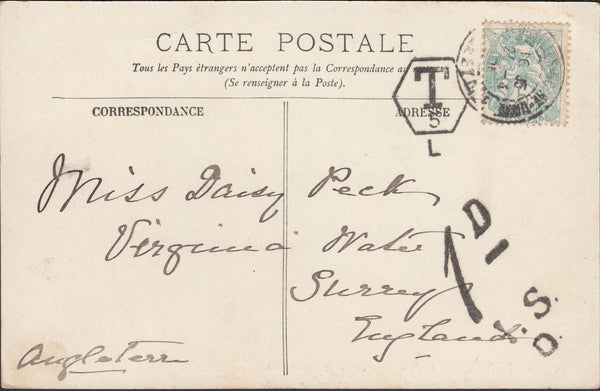 CARTE POSTALE
Tous les Pays étrangers n'acceptent pas la Correspondance au
(Se renseigner à la Poste).
CORRESPONDANCE
ADRESSE
T
5
L
Miss Daisy Peck
Virginia Water
Surrey
England
Angleterre
1D
I. S. O.